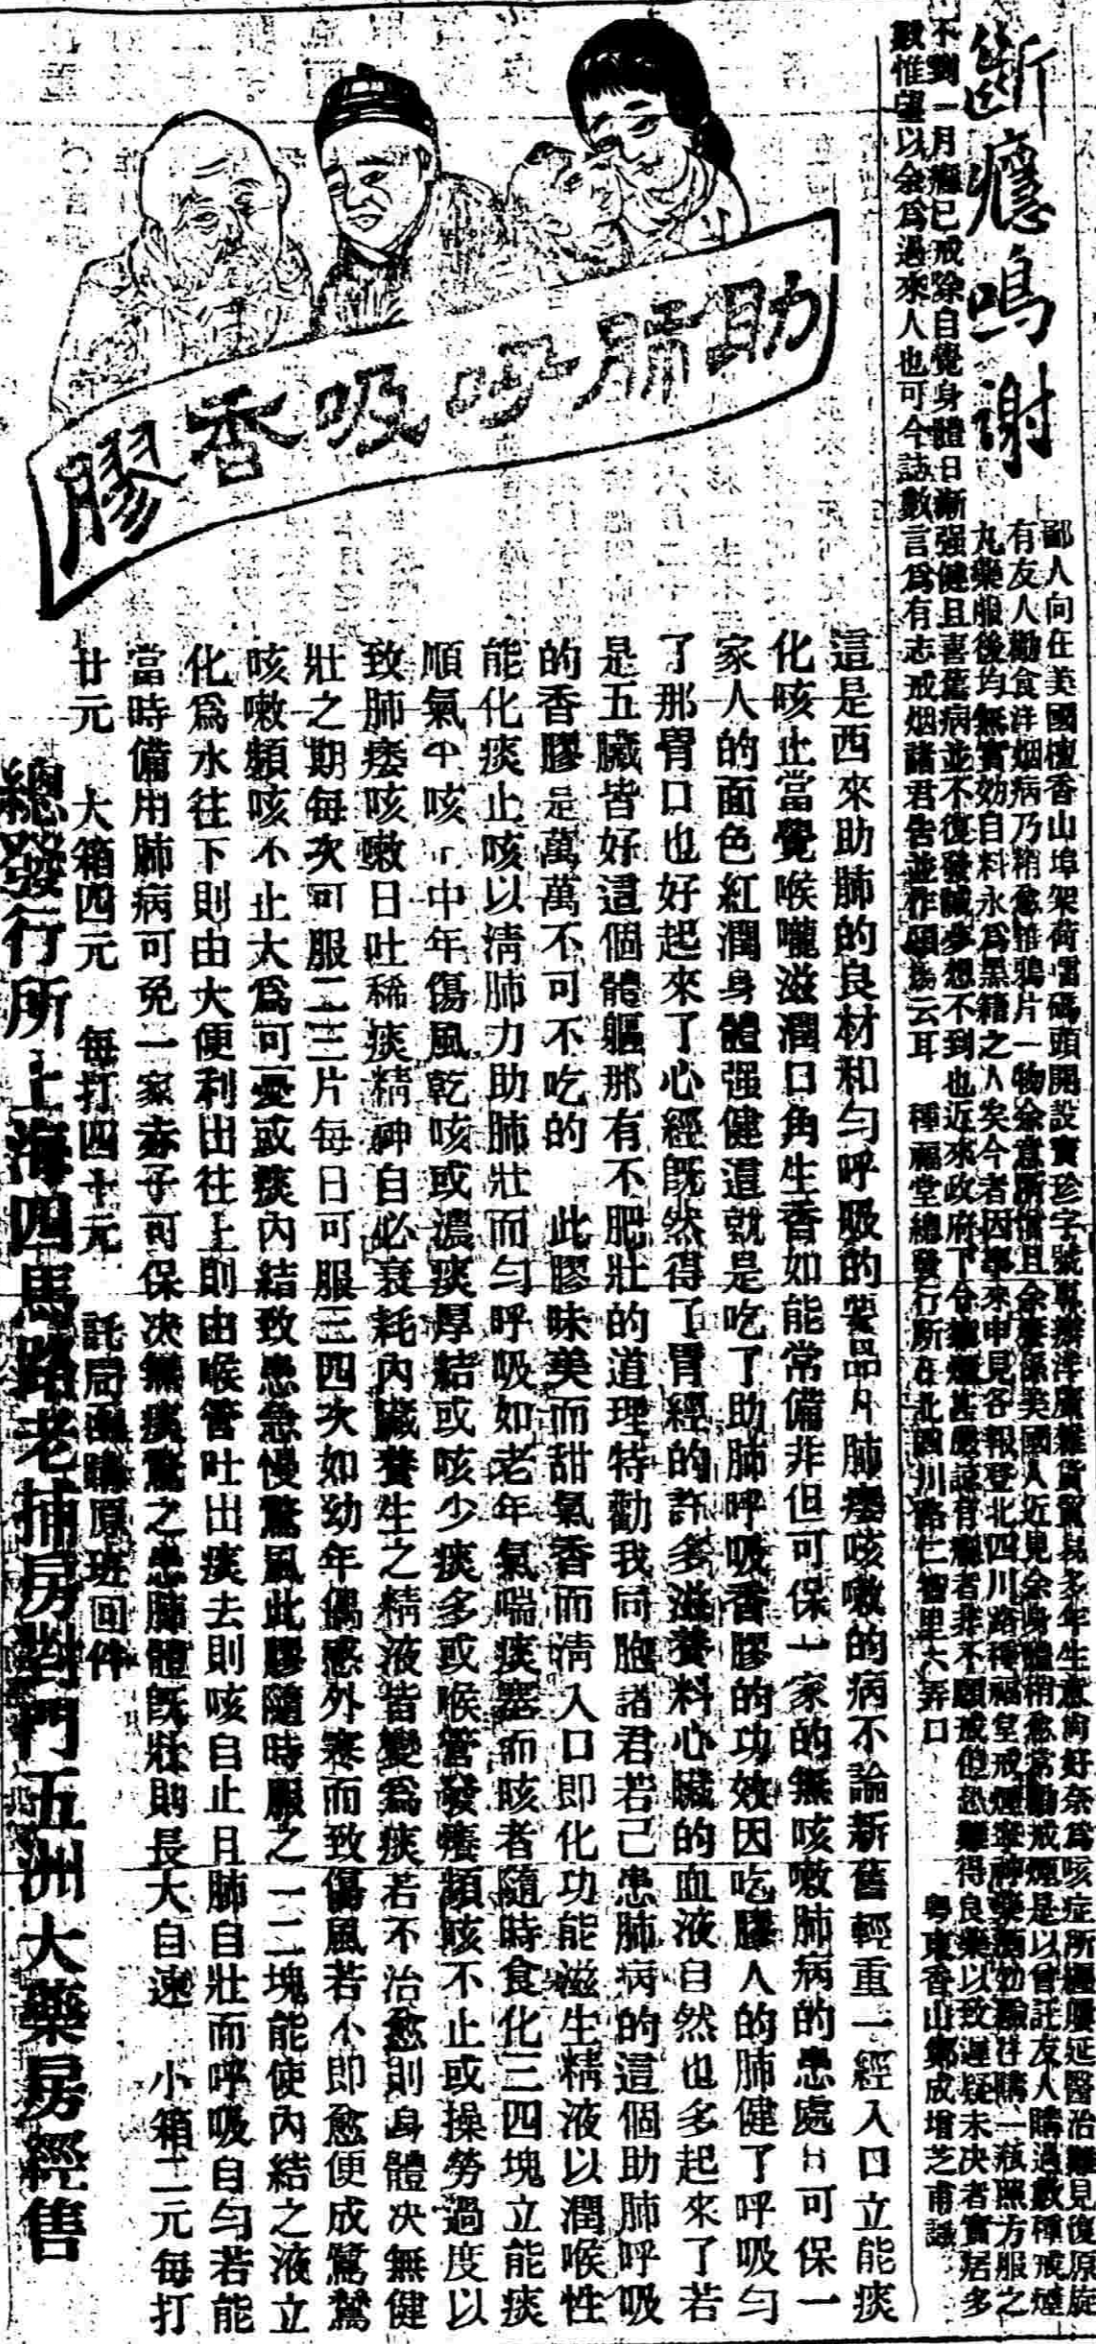 斷癮鳴謝
鄙人向在美國檀香山埠架荷雷碼頭開設寶珍字號專辦洋廣雜貨貿易多年生意尚好奈為咳症所纏屢延醫治難見復原旋
有友人勸食洋烟病乃稍愈雖鴉片一物余意所惜且余屢係美國人近見余身體稍愈常勸戒煙是以曾託友人購過數種戒煙
丸藥服後均無實効自料永為黑籍之人矣今者因事來申見各報登北四川路種福堂戒煙藥購一瓶照方服之
不到一月癮已戒除自覺身體日漸强健且喜舊病並不復發誠夢想不到也近來政府下令禁煙甚嚴諒有癮者非不願戒但恐難得良藥以致遲疑未决者實居多
數惟望以余為過來人也可今誌數言為有志戒烟諸君告並作頌揚云耳　種福堂總發行所在北四川路仁智里六弄口　粵東香山鄭成增芝甫謹
助肺呼吸香膠
這是西來助肺的良材和勻呼吸的要品凡肺痿咳嗽的病不論新舊輕重一經入口立能痰
化咳止當覺喉嚨滋潤口角生香如能常備非但可保一家的無咳嗽肺病的患處且可保一
家人的面色紅潤身體强健這就是吃了助肺呼吸香膠的功效因吃膠人的肺健了呼吸勻
了那胃口也好起來了心經既然得了胃經的許多滋養料心臟的血液自然也多起來了若
是五臟皆好這個體軀那有不肥壯的道理特勸我同胞諸君若己患肺病的這個助肺呼吸
的香膠是萬萬不可不吃的　此膠味美而甜氣香而淸入口即化功能滋生精液以潤喉性
能化痰止咳以淸肺力助肺壯而勻呼吸如老年氣喘痰塞而咳者隨時食化三四塊立能痰
順氣平咳止中年傷風乾咳或濃痰厚結或咳少痰多或喉管發癢頻咳不止或操勞過度以
致肺痿咳嗽日吐稀痰精神自必衰耗內臟養生之精液皆變為痰若不治愈則身體决無健
壯之期每次可服二三片每日可服三四次如幼年偶感外寒而致傷風若不即愈便成鷺鶿
咳嗽頻咳不止大為可憂或痰內結致患急慢驚風此膠隨時服之一二塊能使內結之液立
化為水往下則由大便利出往上則由喉管吐出痰去則咳自止且肺自壯而呼吸自勻若能
當時備用肺病可免一家赤子可保决無痰驚之患肺體既壯則長大自速　小箱二元每打
廿元　大箱四元　每打四十元　託局函購原班回件
總發行所上海四馬路老捕房對門五洲大藥房經售